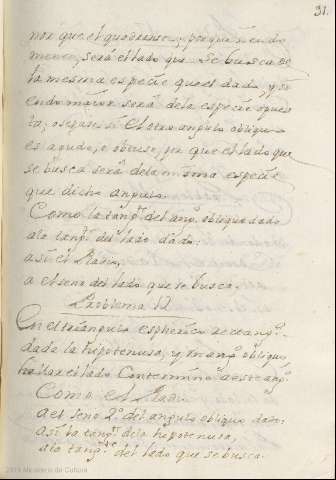 31.
nor que el quadrante; porque siendo
menor, será el lado que se busca de
la mesma especie que el dado, y si
endo maior sera dela especie opues
ta, o segun si el otro angulo obliquo
es agudo, o obtuso, por que el lado que
se busca será dela misma especie
que dicho angulo.
Como la tangte. del ang. obliquo dado
ala tangte. del lado dado.
asi el Radio,
a el seno del lado que se busca.
Problema 12
En el triangulo espherico rectangº.
dada la hipotenusa, y un angº. obliquo
hallar el lado contermino a este angº.
Como el Radio
a el seno 2º. del angulo obliquo dado
asi la tangte. dela hipotenusa,
ala tangte. del lado que se busca.
2019 Ministerio de Cultura